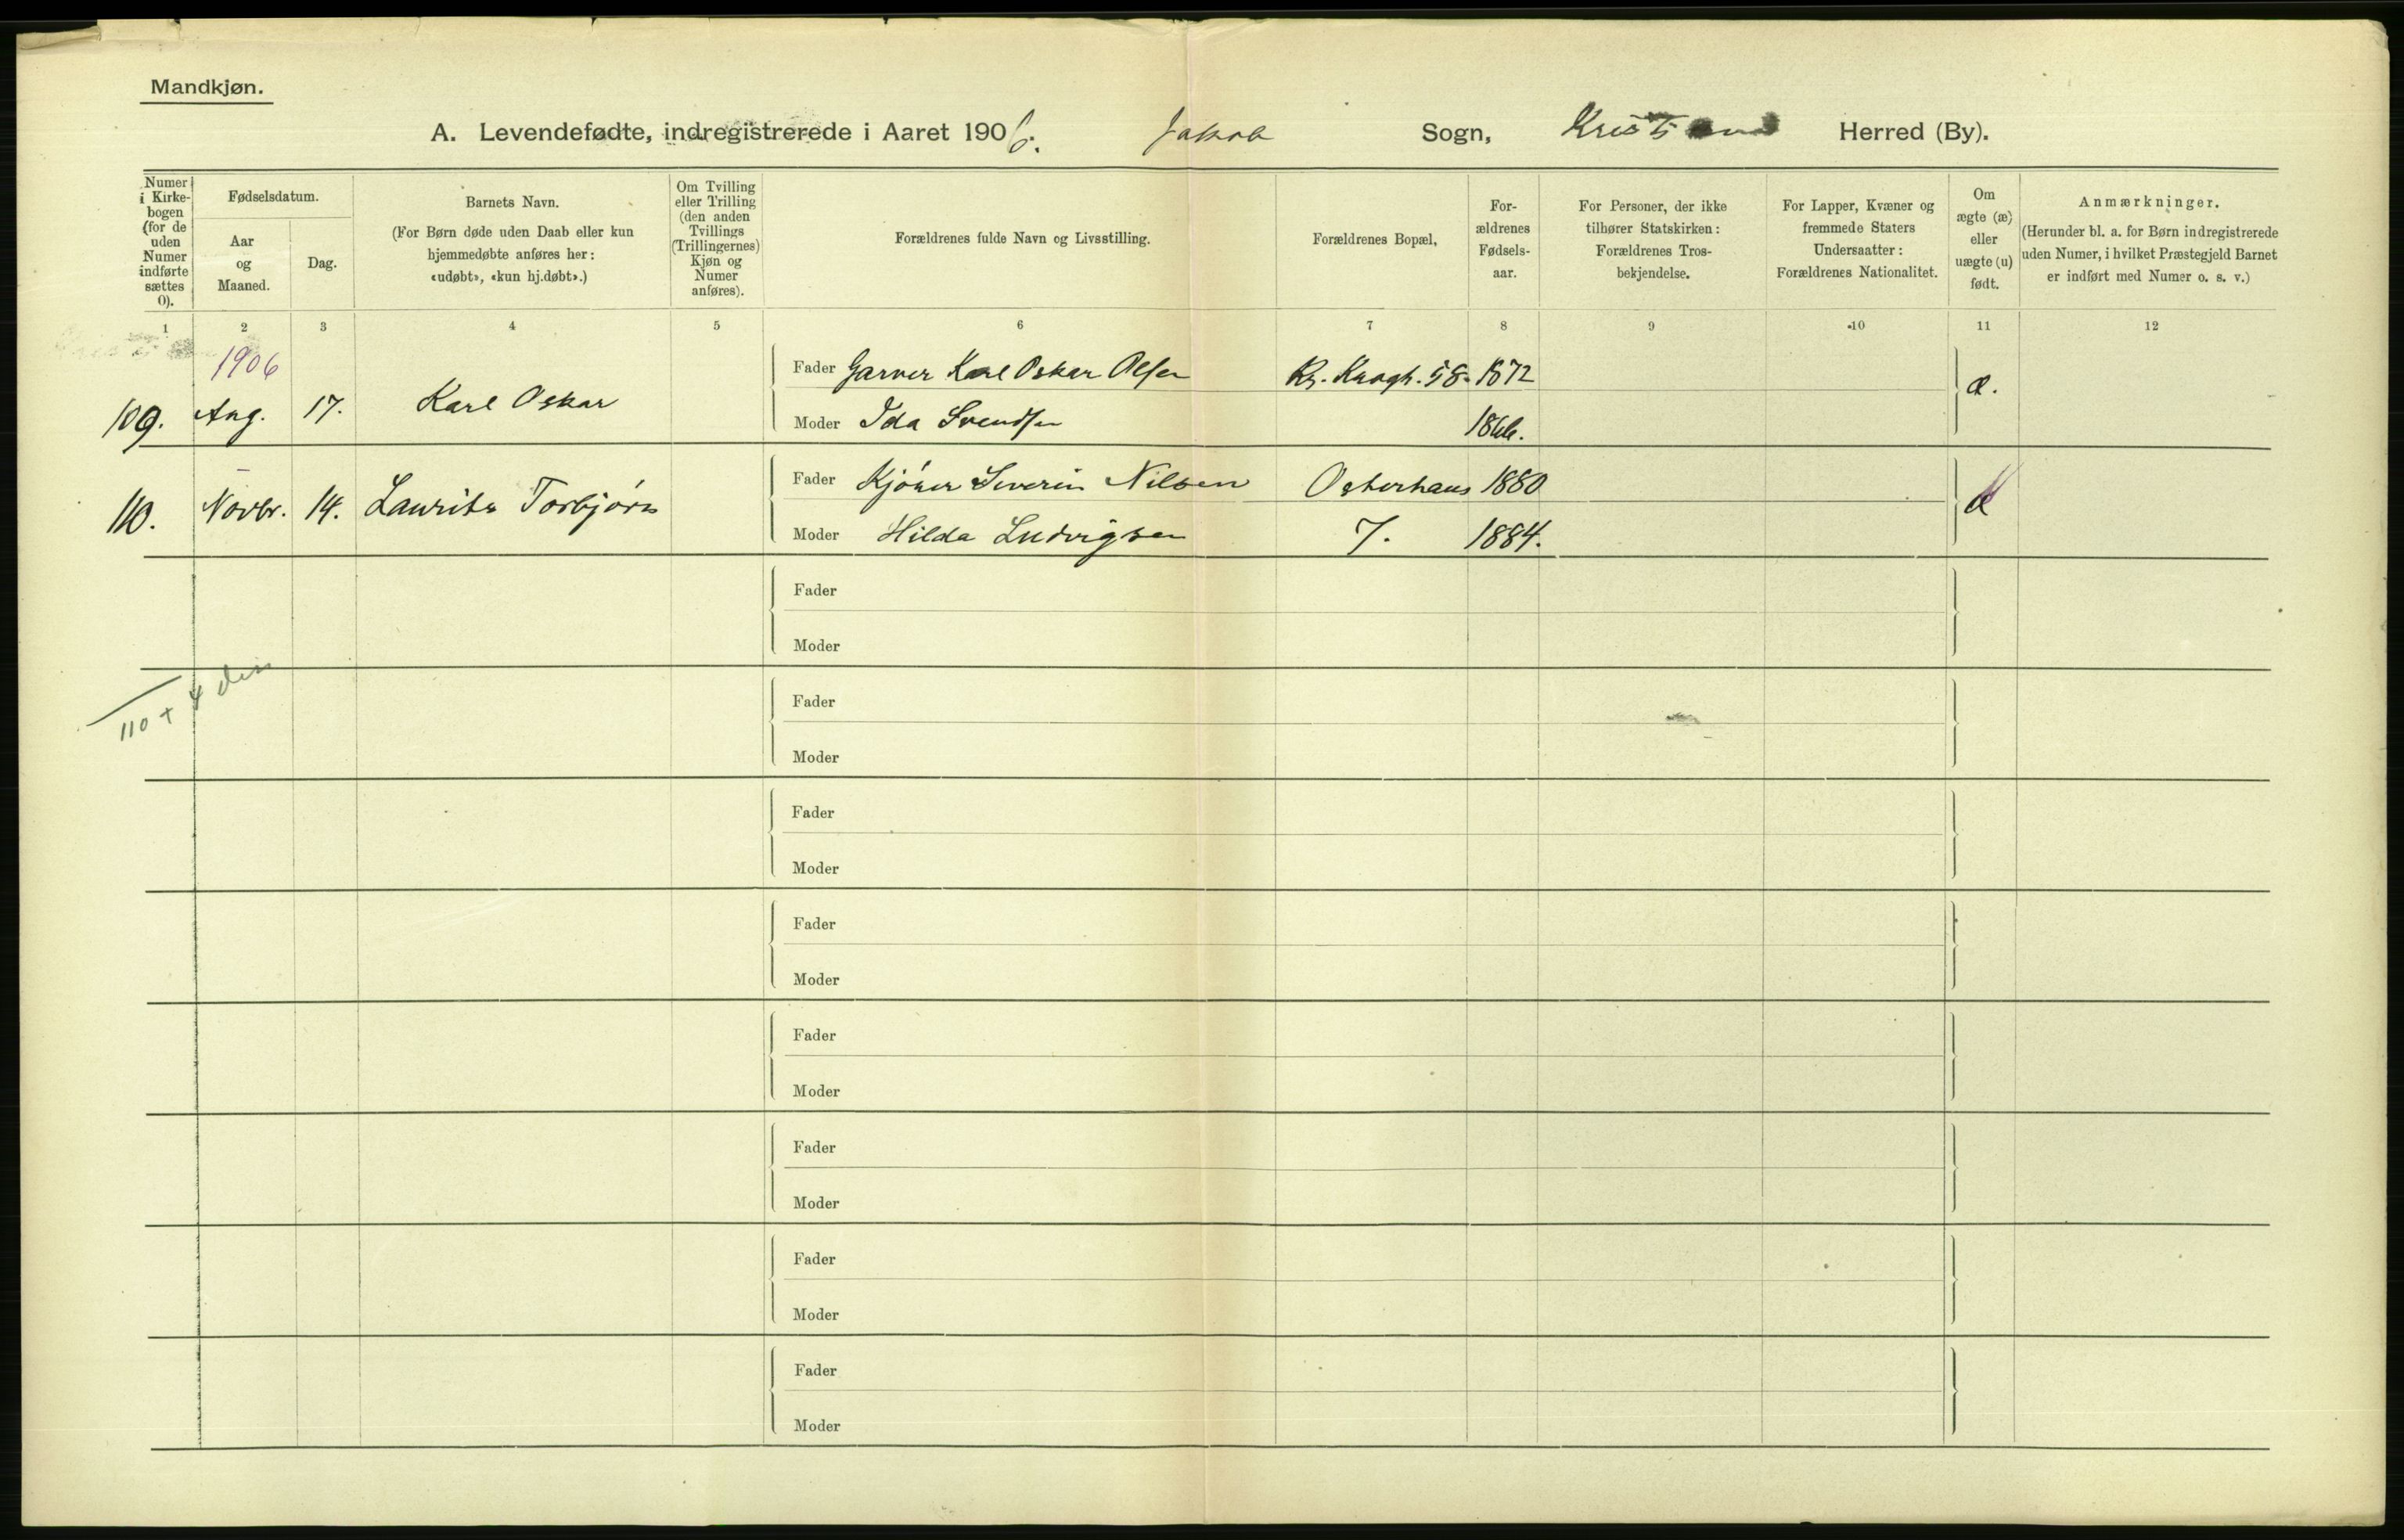 Mandkjøn.
A. Levendefødte, indregistrerede i Aaret 1906. Jakob Sogn, Herred (By).
Numer i Kirkebogen (for de uden Numer indførte sættes 0).
Fødselsdatum.
Aar og Maaned.
Dag.
Barnets Navn.
(For Børn døde uden Daab eller kun hjemmedøbte anføres her: «udøbt», «kun hj.døbt».)
Om Tvilling eller Trilling (den anden Tvillings (Trillingernes) Kjøn og Numer anføres).
Forældrenes fulde Navn og Livsstilling.
Forældrenes Bopæl,
Forældrenes Fødselsaar.
For Personer, der ikke tilhører Statskirken: Forældrenes Trosbekjendelse.
For Lapper, Kvæner og fremmede Staters Undersaatter: Forældrenes Nationalitet.
Om ægte (æ) eller uægte (u) født.
Anmærkninger.
(Herunder bl. a. for Børn indregistrerede uden Numer, i hvilket Præstegjeld Barnet er indført med Numer o. s. v.)
1 2 3 4 5 6 7 8 9 10 11 12
1906
109. Aug. 17. Karl Oskar
Fader Garver Karl Oskar Olsen Kr. Kroghs. 58. 1872
Moder Ida Svendsen 1866.
æ.
110. Novbr. 14. Laurits Torbjørn
Fader Kjører Severin Nilsen Osterhaus 1880
Moder Hilda Ludvigsen 7. 1884.
æ
Fader
Moder
110 + 4
Fader
Moder
Fader
Moder
Fader
Moder
Fader
Moder
Fader
Moder
Fader
Moder
Fader
Moder